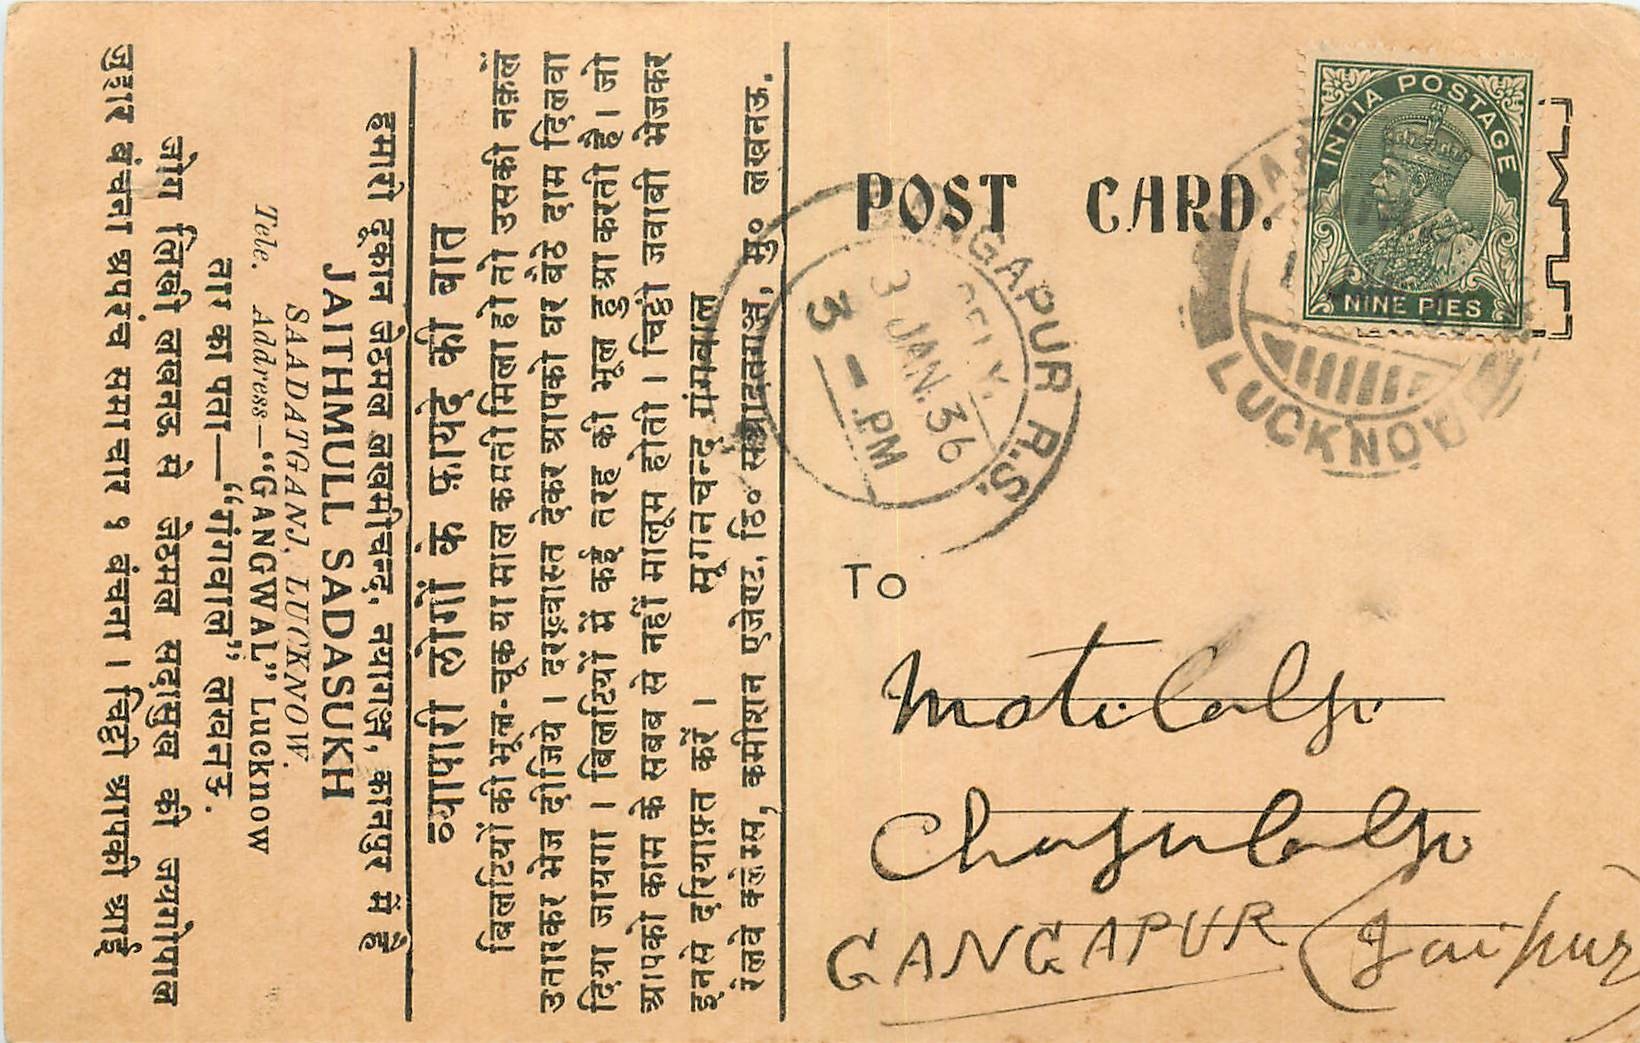 हमारी दूकान जेठमल लखमीचन्द, नयागञ्ज, कानपुर में है
JAITHMULL SADASUKH
SAADATGANJ, LUCKNOW.
Tele. Address—“GANGWAL” Lucknow
तार का पता—“गंगवाल” लखनऊ.
जोग लिखी लखनऊ से जेठमल सदासुख की जयगोपाल
जुहार बंचना अपरंच समाचार १ बंचना । चिट्ठी आपकी आई
व्यापारी लोगों के फायदे की बात
बिलटियों की भूल-चूक या माल कमती मिला हो तो उसकी नक़लें
उतारकर भेज दीजिये । दरख़्वास्त देकर आपको घर बैठे दाम दिलवा
दिया जायगा । बिलटियों में कई तरह की भूल हुआ करती है । जो
आपको काम के सबब से नहीं मालूम होती । चिट्ठी जवाबी भेजकर
इनसे दरियाफ़्त करें । सूगनचन्द गंगवाल
रेलवे क्लेम्स, कमीशन एजेण्ट, ठि० सआदतगञ्ज, मु० लखनऊ.
POST CARD.
INDIA POSTAGE
NINE PIES
LUCKNOW
GANGAPUR R.S.
DELY.
3 JAN. 36
3 - PM
TO
Motilalji
Chagulalji
GANGAPUR (Jaipur)